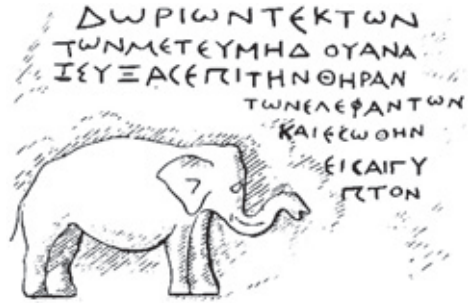 ΔΩΡΙΩΝΤΕΚΤΩΝ
ΤΩΝΜΕΤΕΥΜΗΔ ΟΥΑΝΑ
ΙΕΥΞΑΣΕΠΙΤΗΝΘΗΡΑΝ
ΤΩΝΕΛΕΦΑΝΤΩΝ
ΚΑΙΕΣΩΘΗΝ
ΕΙΣΑΙΓΥ
ΠΤΟΝ